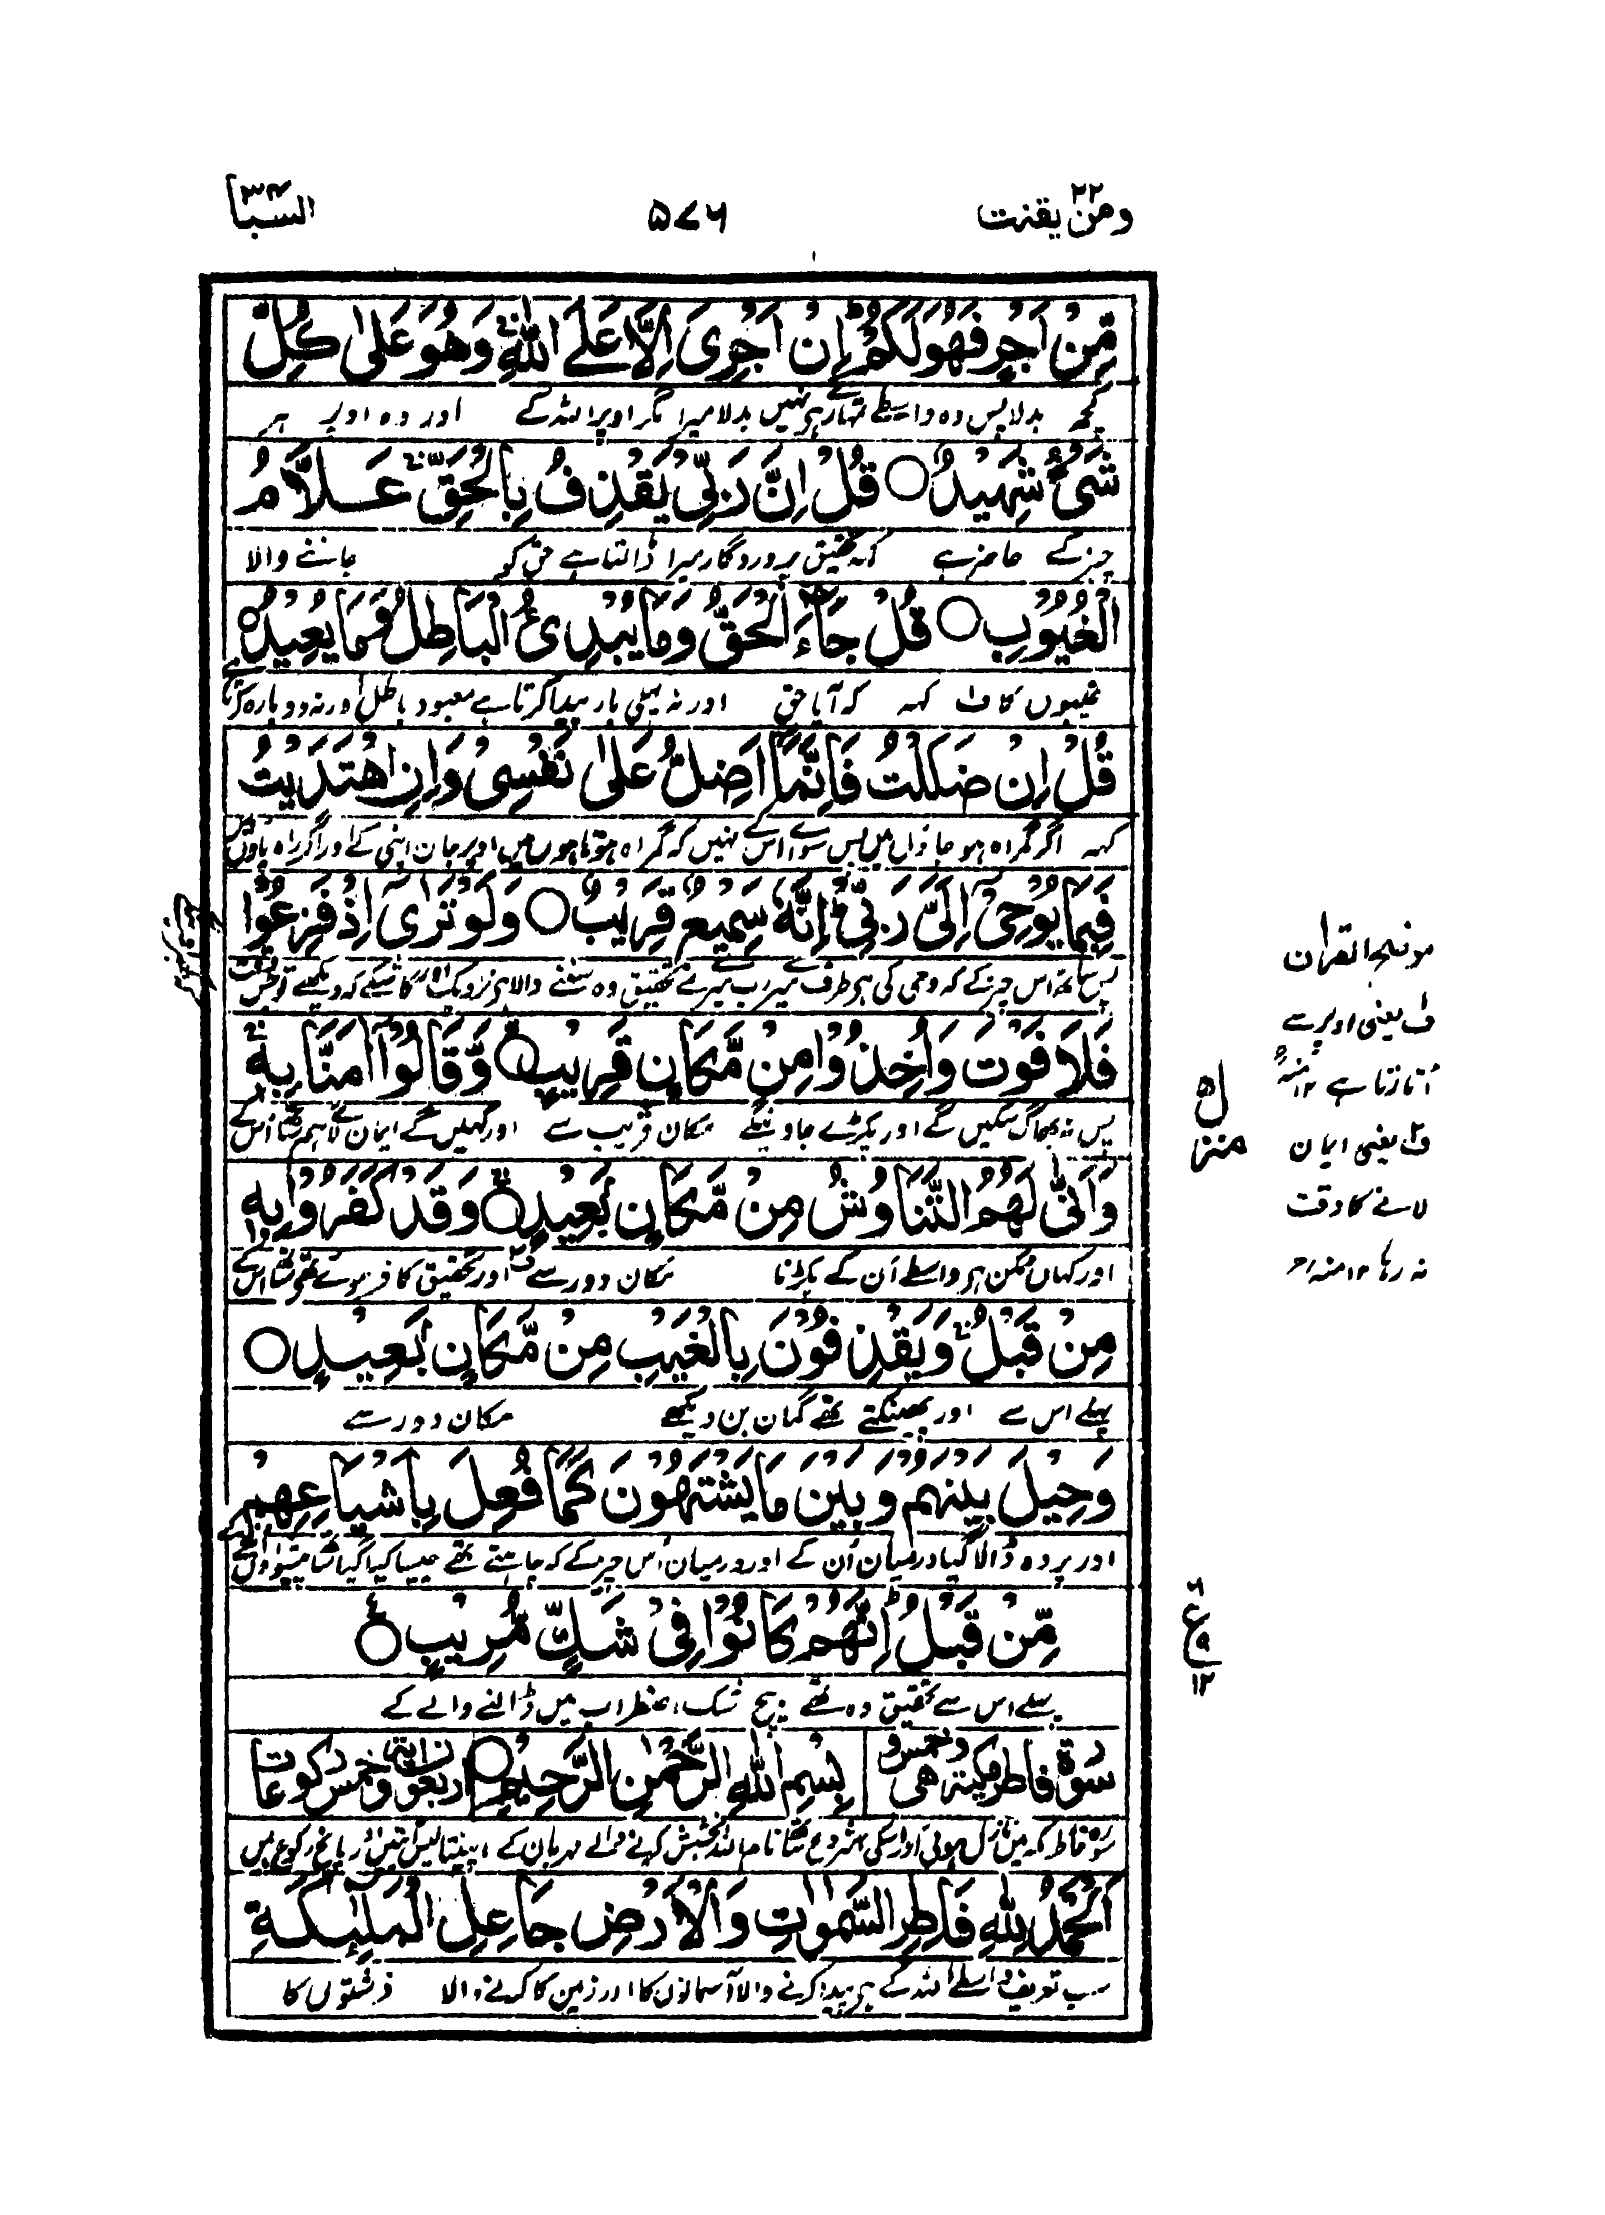 ومن يقنت ٢٢
٥٧٦
السبا ٣٤
مِّنْ اَجْرٍ فَهُوَ لَكُمْ ؕ اِنْ اَجْرِىَ اِلَّا عَلَى اللّٰهِ ۚ وَهُوَ عَلٰى كُلِّ
کچھ بدلا پس وہ واسطے تمہارے ہے نہیں بدلا میرا مگر اوپر اللہ کے اور وہ اوپر ہر
شَىْءٍ شَهِيْدٌ ○ قُلْ اِنَّ رَبِّىْ يَقْذِفُ بِالْحَقِّ ۚ عَلَّامُ
چیز کے حاضر ہے کہہ تحقیق پروردگار میرا ڈالتا ہے حق کو جاننے والا
الْغُيُوْبِ ○ قُلْ جَآءَ الْحَقُّ وَمَا يُبْدِئُ الْبَاطِلُ وَمَا يُعِيْدُ ○
غیبوں کا ف۱ کہہ کہ آیا حق اور نہ پہلی بار پیدا کرتا ہے معبود باطل اور نہ دوبارہ کرتا ہے
قُلْ اِنْ ضَلَلْتُ فَاِنَّمَاۤ اَضِلُّ عَلٰى نَفْسِىْ ۚ وَاِنِ اهْتَدَيْتُ
کہہ اگر گمراہ ہو جاؤں میں پس سوائے اس کے نہیں کہ گمراہ ہوتا ہوں میں اوپر جان اپنی کے اور اگر راہ پاؤں
فَبِمَا يُوْحِىْۤ اِلَىَّ رَبِّىْ ؕ اِنَّهٗ سَمِيْعٌ قَرِيْبٌ ○ وَلَوْ تَرٰٓى اِذْ فَزِعُوْا
پس ساتھ اس چیز کے کہ وحی کی ہے طرف میرے رب میرے نے تحقیق وہ سننے والا ہے نزدیک اور کاشکے کہ دیکھے تو جس وقت
فَلَا فَوْتَ وَاُخِذُوْا مِنْ مَّكَانٍ قَرِيْبٍ ○ وَّقَالُوْۤا اٰمَنَّا بِهٖ ۚ
پس نہ بھاگ سکیں گے اور پکڑے جاوینگے مکان قریب سے اور کہیں گے ایمان لائے ہم ساتھ اس کے
وَاَنّٰى لَهُمُ التَّنَاوُشُ مِنْ مَّكَانٍ بَعِيْدٍ ○ وَقَدْ كَفَرُوْا بِهٖ
اور کہاں ممکن ہے واسطے ان کے پکڑنا مکان دور سے ف۲ اور تحقیق کافر ہوئے تھے ساتھ اس کے
مِنْ قَبْلُ ۚ وَيَقْذِفُوْنَ بِالْغَيْبِ مِنْ مَّكَانٍ بَعِيْدٍ ○
پہلے اس سے اور پھینکتے تھے گمان بن دیکھے مکان دور سے
وَحِيْلَ بَيْنَهُمْ وَبَيْنَ مَا يَشْتَهُوْنَ كَمَا فُعِلَ بِاَشْيَاعِهِمْ
اور پردہ ڈالا گیا درمیان اُن کے اور درمیان اُس چیز کے کہ چاہتے تھے جیسا کیا گیا ساتھ
مِّنْ قَبْلُ ؕ اِنَّهُمْ كَانُوْا فِىْ شَكٍّ مُّرِيْبٍ ○
پہلے اس سے تحقیق وہ تھے بیچ شک اضطراب میں ڈالنے والے کے
سورة فاطر مكية وهى خمس و بِسْمِ اللّٰهِ الرَّحْمٰنِ الرَّحِيْمِ ○ اربعون اٰية و خمس ركوعات
سورہ فاطر مکہ میں نازل ہوئی اور اس کی شروع ساتھ نام اللہ بخشش کرنے والے مہربان کے پینتالیس آیتیں اور پانچ رکوع ہیں
اَلْحَمْدُ لِلّٰهِ فَاطِرِ السَّمٰوٰتِ وَالْاَرْضِ جَاعِلِ الْمَلٰٓئِكَةِ
سب تعریف واسطے اللہ کے ہے پیدا کرنے والا آسمانوں کا اور زمین کا کرنے والا فرشتوں کا
موضح القرآن
ف۱ یعنی اوپر سے
اتارتا ہے ١٢ منہ
ف۲ یعنی ایمان
لانے کا وقت
نہ رہا ١٢ منہ
منزل ٥
٦
ع
٩
١٢